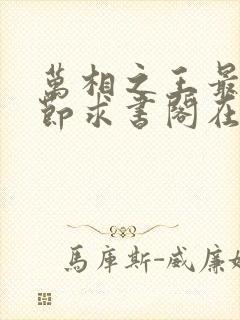 萬相之王最
節求書閣在
馬庫斯-威廉